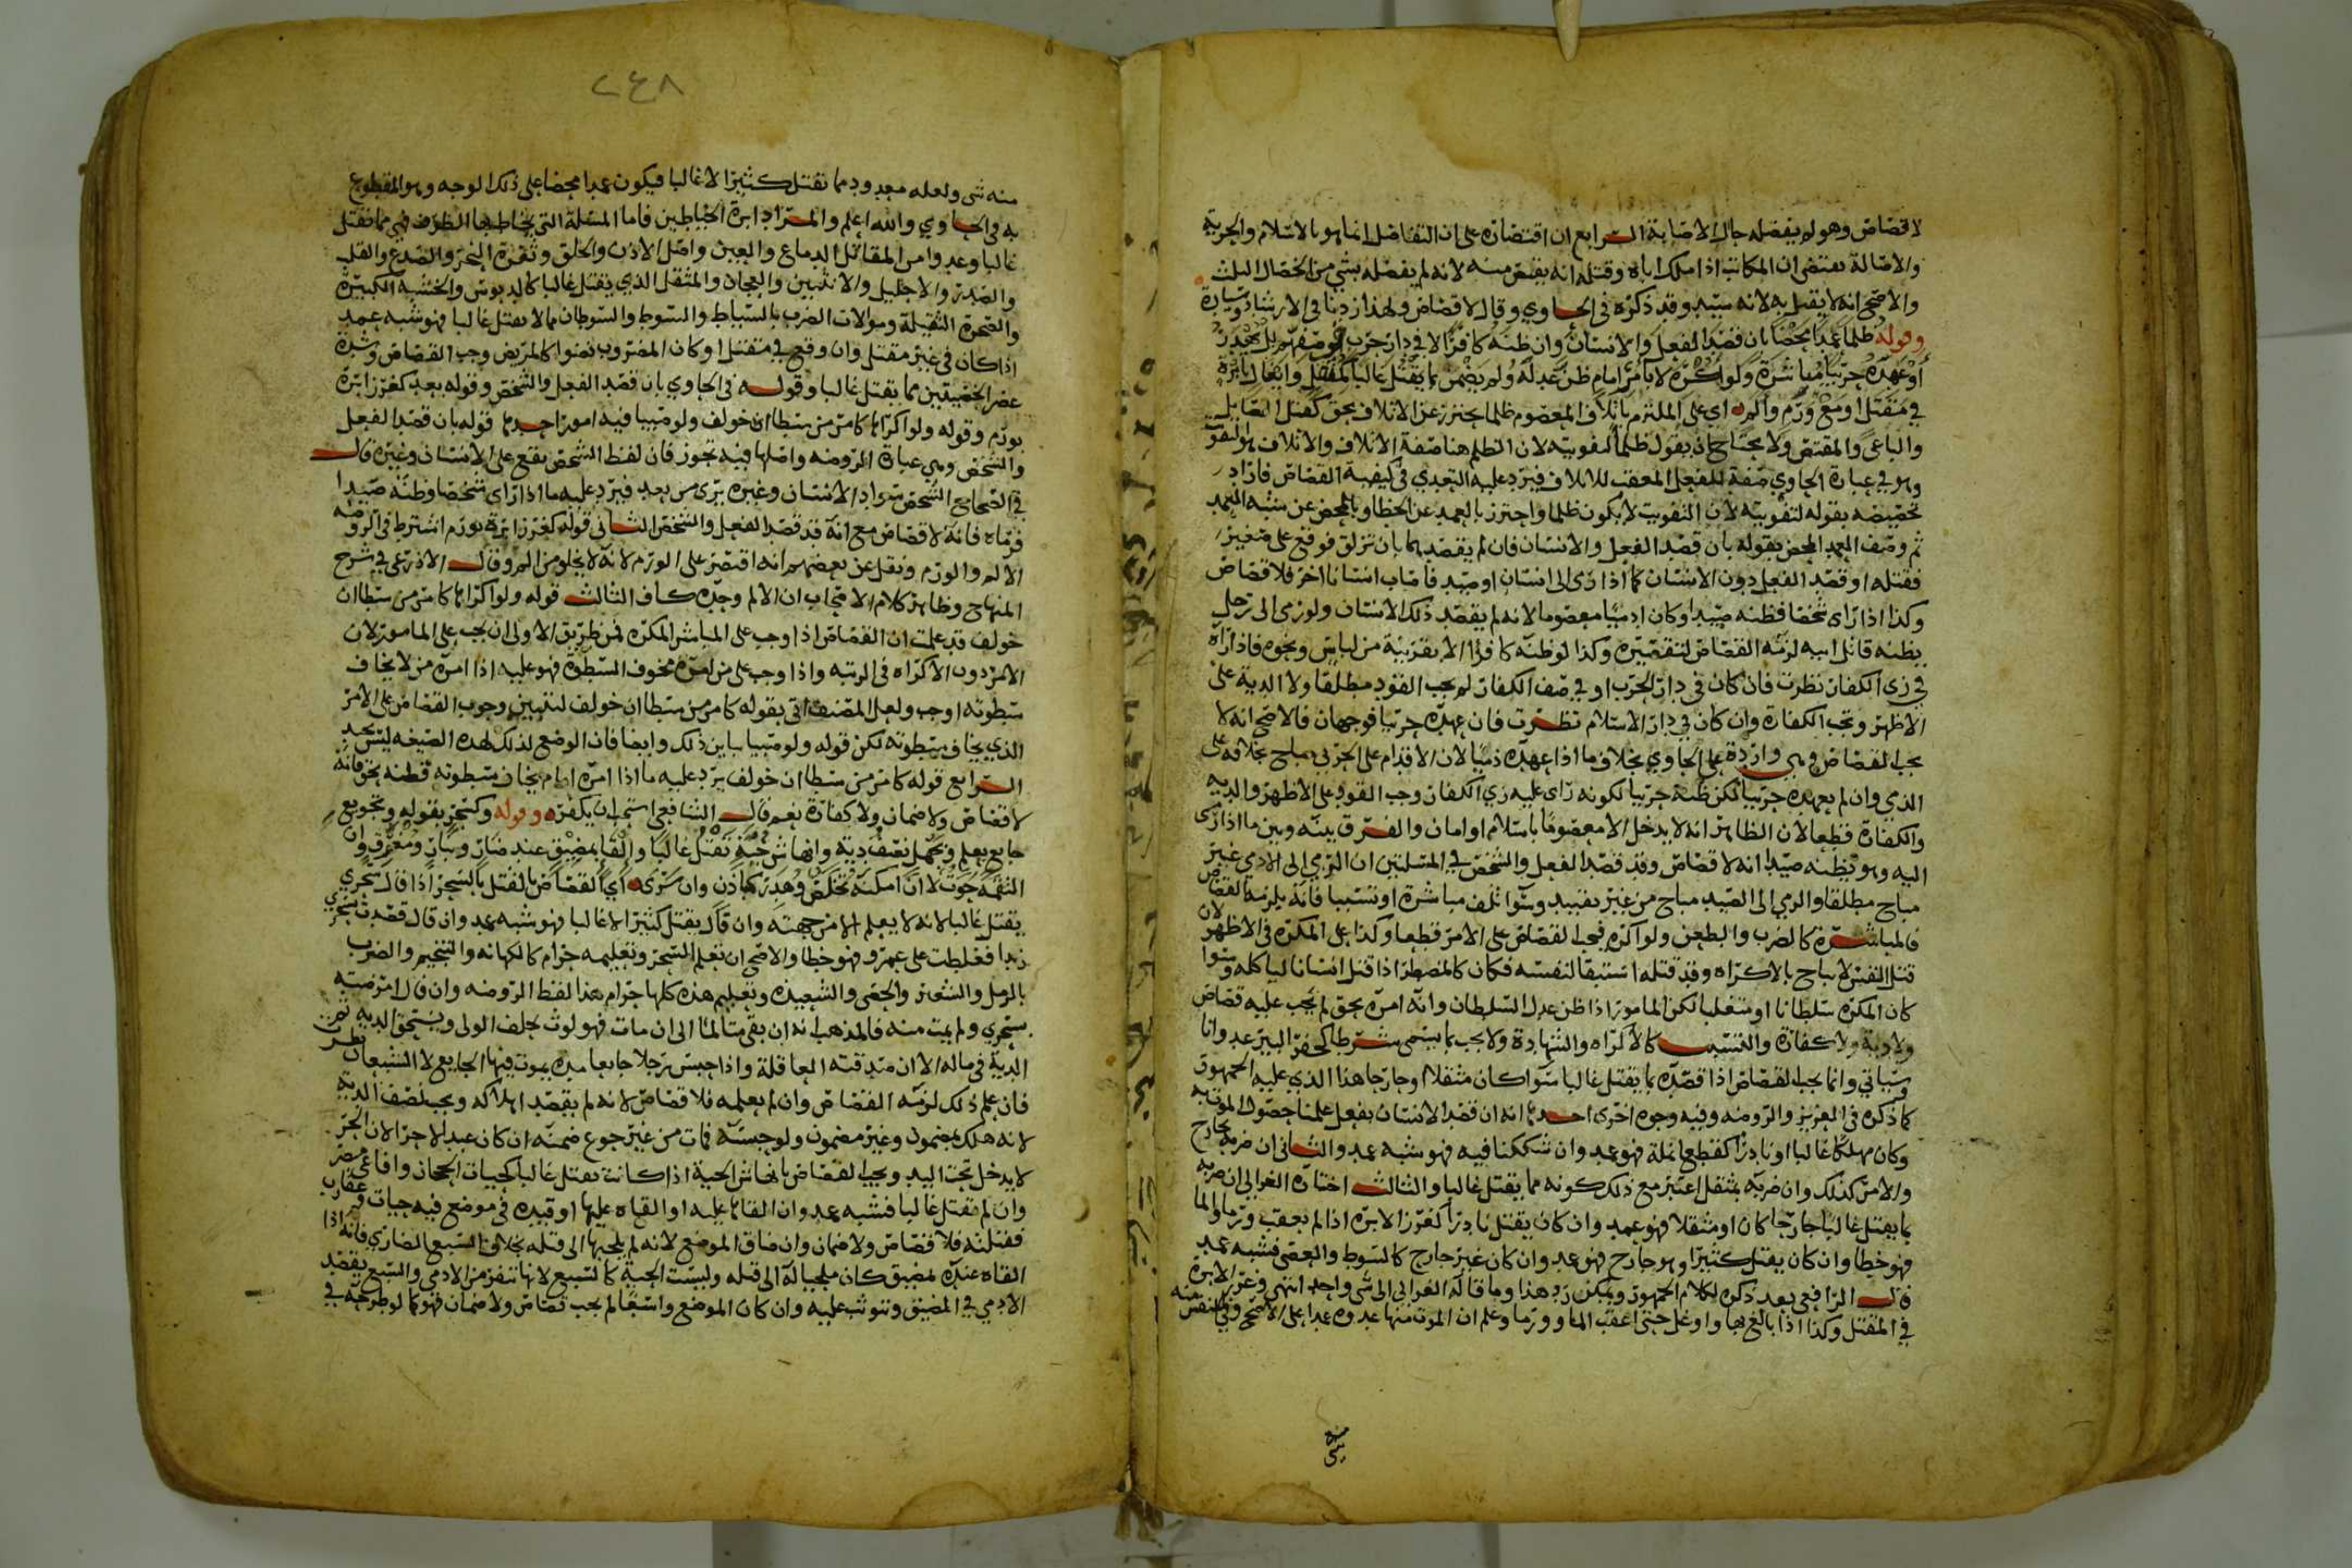 لا قصاص وهو لم يفضله حال الاصابة الرابع ان اقتضاره على ان التفاضل انما هو بالاسلام والحرية
والاصالة يقتضي ان المكاتب اذا ملك اباه وقتله انه يقتص منه لانه لم يفضله بشي من الخصال الثلث
والاصح انه لا يقتل به لانه سيده وقد ذكره في الحاوي وقال لا قصاص ولهذا زدنا في الارشاد وسيادة
وقوله ظلما عمدا محضا بان قصد الفعل والانسان وان ظنه كافرا لا في دار حرب او صفهم
او عهده حربيا مباشرة ولو اكره لا بامر امام ظن عدله ولم يضمن بما يقتل غالبا كمثقل وانغال بابرة
في مقتل او مع ورم والم اي على الملتزم باتلاف المعصوم ظلما يحترز عن الاتلاف بحق كقتل الصايل
والباغي والمقتص ولا يحتاج ان يقول ظلما لتفويته لان الظلم هنا صفة الاتلاف والاتلاف هو التفويت
وهو في عبارة الحاوي صفة للفعل المعقب للاتلاف فيرد عليه التعدي في كيفية القصاص فاراد
تخصيصه بقوله لتفويته لان التفويت لا يكون ظلما واحترز بالعمد عن الخطا وبالمحض عن شبه العمد
ثم وصف العمد المحض بقوله بان قصد الفعل والانسان فان لم يقصدهما بان تزلق فوقع على صغير
فقتله او قصد الفعل دون الانسان كما اذا رمى الى انسان او صيد فاصاب انسانا اخر فلا قصاص
وكذا اذا راى شخصا فظنه صيدا وكان ادميا معصوما لانه لم يقصد ذلك الانسان ولو رمى الى رجل
يظنه قاتل ابيه لزمه القصاص لتقصيره وكذا لو ظنه كافرا الا بقرينة من لباس ونحوه فاذا راه
في زي الكفار نظرت فان كان في دار الحرب او في صف الكفار لم يجب القود مطلقا ولا الدية على
الاظهر وتجب الكفارة وان كان في دار الاسلام نظرت فان عهده حربيا فوجهان فالاصح انه لا
يجب القصاص وهي واردة على الحاوي بخلاف ما اذا عهده ذميا لان الاقدام على الحربي مباح بخلافه على
الذمي وان لم يعهده حربيا لكن ظنه حربيا لكونه راى عليه زي الكفار وجب القود على الاظهر والدية
والكفارة قطعا لان الظاهر انه لا يدخل الا معصوما باسلام او امان والفرق بينه وبين ما اذا رمى
اليه وهو يظنه صيدا انه لا قصاص وقد قصد الفعل والشخص في المسلتين ان الرمي الى الادمي غير
مباح مطلقا والرمي الى الصيد مباح من غير تقييد وسوا تلف مباشرة او تسببا فانه يلزمه القصاص
فالمباشرة كالضرب والطعن ولو اكره فيجب القصاص على الامر قطعا وكذا على المكره في الاظهر لان
قتل النفس لا يباح بالاكراه وقد قتله استبقا لنفسه فكان كالمضطر اذا قتل انسانا لياكله وسوا
كان المكره سلطانا او متغلبا لكن المامور اذا ظن عدل السلطان وانه امره بحق لم يجب عليه قصاص
ولا دية ولا كفارة والتسبب كالاكراه والشهادة ولا يجب بما يسمى شرطا كحفر البير عدوانا
وسياتي وانما يجب القصاص اذا قصده بما يقتل غالبا سوا كان مثقلا او جارحا هذا الذي عليه الجمهور
كما ذكره في العزيز والروضه وفيه وجوه اخرى احدها انه ان قصد الانسان بفعل علمنا حصول الموت به
وكان مهلكا غالبا او نادرا كقطع انملة فهو عمد وان شككنا فيه فهو شبه عمد والثاني ان ضربه بجارح
والامر كذلك وان ضربه بمثقل اعتبر مع ذلك كونه مما يقتل غالبا والثالث اختاره الغزالي ان ضربه
بما يقتل غالبا جارحا كان او مثقلا فهو عمد وان كان يقتل نادرا كغرز الابره اذا لم يعقب ورما والما
فهو خطا وان كان يقتل كثيرا وهو جارح فهو عمد وان كان غير جارح كالسوط والعصى فشبه عمد
قال الرافعي بعد ذكره لكلام الجمهور ويمكن رد هذا وما قاله الغزالي الى شي واحد انتهى وغرز الابرة
في المقتل وكذا اذا بالغ بها واوغل حتى اعقب الما وورما وعلم ان الموت منها عدوه عمدا على الاصح وفي النفس منه
منه شي
٢٤٨
منه شي ولعله معدود مما يقتل كثيرا لا غالبا فيكون عمدا محضا على ذلك الوجه وهو المقطوع
به في الحاوي والله اعلم والمراد ابرة الخياطين فاما المسلة التي يخاط بها الظرف فهي مما يقتل
غالبا وعدوا من المقاتل الدماغ والعين واصل الاذن والحلق وثغرة النحر والصدغ والقلب
والصدر والاحليل والانثيين والعجان والمثقل الذي يقتل غالبا كالدبوس والخشبة الكبيرة
والصخرة الثقيلة وموالات الضرب بالسياط والسوط والسوطان مما لا يقتل غالبا فهو شبه عمد
اذا كان في غير مقتل وان وقع في مقتل او كان المضروب نضوا كالمريض وجب القصاص وشدة
عصر الخصيتين مما يقتل غالبا وقوله في الحاوي بان قصد الفعل والشخص وقوله بعد كغرز ابرة
بورم وقوله ولو اكراها كامر من سطا ان خولف ولو صبيا فيه امور احدها قوله بان قصد الفعل
والشخص وهي عبارة الروضه واصلها فيه تجوز فان لفظ الشخص يقع على الانسان وغيره قال
في الصحاح الشخص سواد الانسان وغيره يرى من بعد فيرد عليه ما اذا راى شخصا وظنه صيدا
فرماه فانه لا قصاص مع انه قد قصد الفعل والشخص الثاني قوله كغرز ابرة بورم اشترط في الروضه
الالم والورم ونقل عن بعضهم انه اقتصر على الورم لانه لا يخلو من الم وقال الاذرعي في شرح
المنهاج وظاهر كلام الاصحاب ان الالم وحده كاف الثالث قوله ولو اكراها كامر من سطا ان
خولف قد علمت ان القصاص اذا وجب على المباشر المكره فمن طريق الاولى ان يجب على المامور لان
الامر دون الاكراه في الرتبه واذا وجب على من امره مخوف السطوة فهو عليه اذا امره من لا يخاف
سطوته اوجب ولعل المصنف اتى بقوله كامر من سطا ان خولف لتبيين وجوب القصاص على الامر
الذي يخاف سطوته لكن قوله ولو صبيا يباين ذلك وايضا فان الوضع لذلك لهذه الصيغه ليس بجيد
الرابع قوله كامر من سطا ان خولف يرد عليه ما اذا امره امام يخاف سطوته فظنه بحق فانه
لا قصاص ولا ضمان ولا كفارة نعم قال الشافعي استحب ان يكفر وقوله وكسحر بقوله وتجويع
جايع بعلم وبجهل نصف دية وانهاش حية تقتل غالبا والقا بمضيق عند ضار وبنار ومغرق وان
التقمه حوت لا ان امكنه تخلص وهدر كاذن وان سرى اي القصاص بالقتل بالسحر اذا قال سحري
يقتل غالبا لانه لا يعلم الا من جهته وان قال يقتل كثيرا لا غالبا فهو شبه عمد وان قال قصدت بسحري
زيدا فغلطت على عمرو فهو خطا والاصح ان تعلم السحر وتعليمه حرام كالكهانه والتنجيم والضرب
بالرمل والشعير والحصى والشعبذه وتعليم هذه كلها حرام هذا لفظ الروضه وان قال امرضته
بسحري ولم يمت منه فالمذهب انه ان بقي متالما الى ان مات فهو لوث يحلف الولي ويستحق الدية ثم
الدية في ماله الا ان صدقته العاقلة واذا حبس رجلا جايعا مده يموت فيها الجايع لا الشبعان نظر
فان علم ذلك لزمه القصاص وان لم يعلمه فلا قصاص لانه لم يقصد اهلاكه ويجب نصف الدية
لانه هلك بمضمون وغير مضمون ولو حبسه فمات من غير جوع ضمنه ان كان عبدا لا حرا لان الحر
لا يدخل تحت اليد ويجب القصاص بانهاش الحية اذا كانت تقتل غالبا كحيات الحجاز وافاعي مصر
وان لم تقتل غالبا فشبه عمد وان القاها عليه او القاه عليها او قيده في موضع فيه حيات وعقارب
فقتلته فلا قصاص ولا ضمان وان ضاق الموضع لانه لم يلجيها الى قتله بخلاف السبع الضاري فانه اذا
القاه عنده بمضيق كان ملجيا له الى قتله وليست الحية كالسبع لانها تنفر من الادمي والسبع يقصد
الادمي في المضيق ويتوثب عليه وان كان الموضع واسعا لم يجب قصاص ولا ضمان فهو كما لو طرحه في